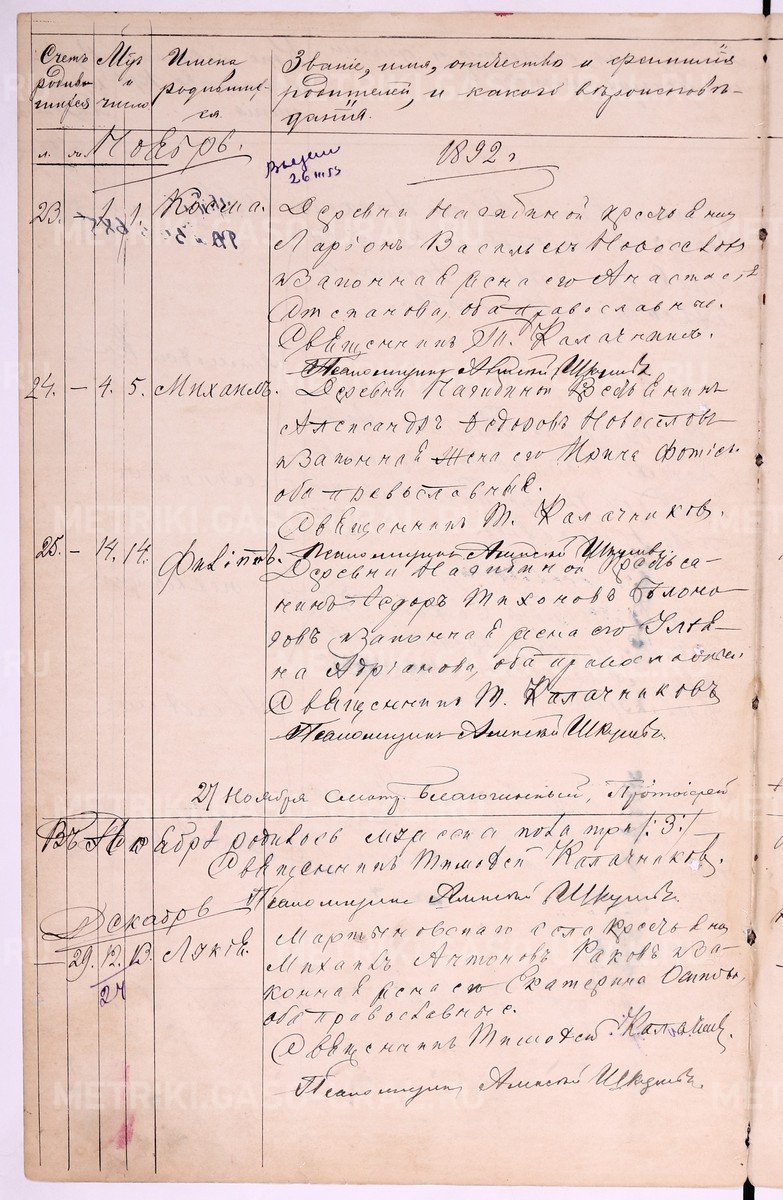 Счетъ родив- шихся
Мѣс. и число
Имена родивших- ся.
Званіе, имя, отчество и фамилія
родителей, и какого вѣроисповѣ-
данія.
м. ж. Ноябрь. 1892 г
23. – 1. 1. Косма. Деревни Нагибиной крестьянинъ
Ларіонъ Васильевъ Новоселовъ
и законная жена его Анастасія
Степанова, оба православные.
Священникъ Т. Калачниковъ.
Псаломщикъ Алексей
24. – 4. 5. Михаилъ. Деревни Нагибиной крестьянинъ
Александръ Ѳедоровъ Новоселовъ
и законная жена его Ирина Фотіева
оба православные.
Священникъ Т. Калачниковъ.
Псаломщикъ Алексей
25. – 14. 14. Филіппъ. Деревни Нагибиной крестья-
нинъ Ѳедоръ Тихоновъ Бѣломо-
ховъ и законная жена его Улья-
на Адріанова, оба православные
Священникъ Т. Калачниковъ
Псаломщикъ Алексей
27 Ноября Смотр. Благочинный, Протоіерей
Въ Ноябрѣ родилось мужеска пола три /:3:/
Священникъ Тимоѳей Калачниковъ.
Псаломщикъ Алексей
Декабрь
– 29. 12. 13. Лукія. Мартыновскаго села крестьянинъ
24 Михаилъ Антоновъ Раковъ и за-
конная жена его Екатерина Осипова,
оба православные.
Священникъ Тимоѳей Калачниковъ.
Псаломщикъ Алексей